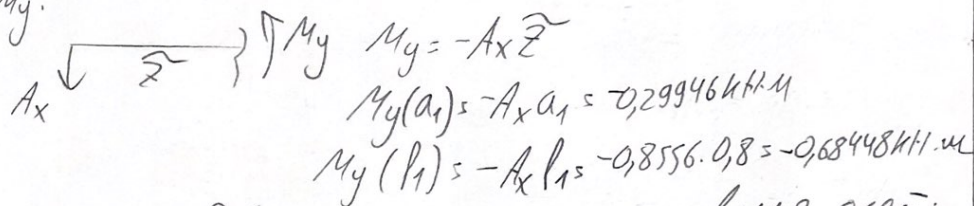 My.
Ax z̃ My My = -Ax z̃
My(a₁) = -Ax a₁ = -0,29946 кН·м
My(l₁) = -Ax l₁ = -0,8556·0,8 = -0,68448 кН·м